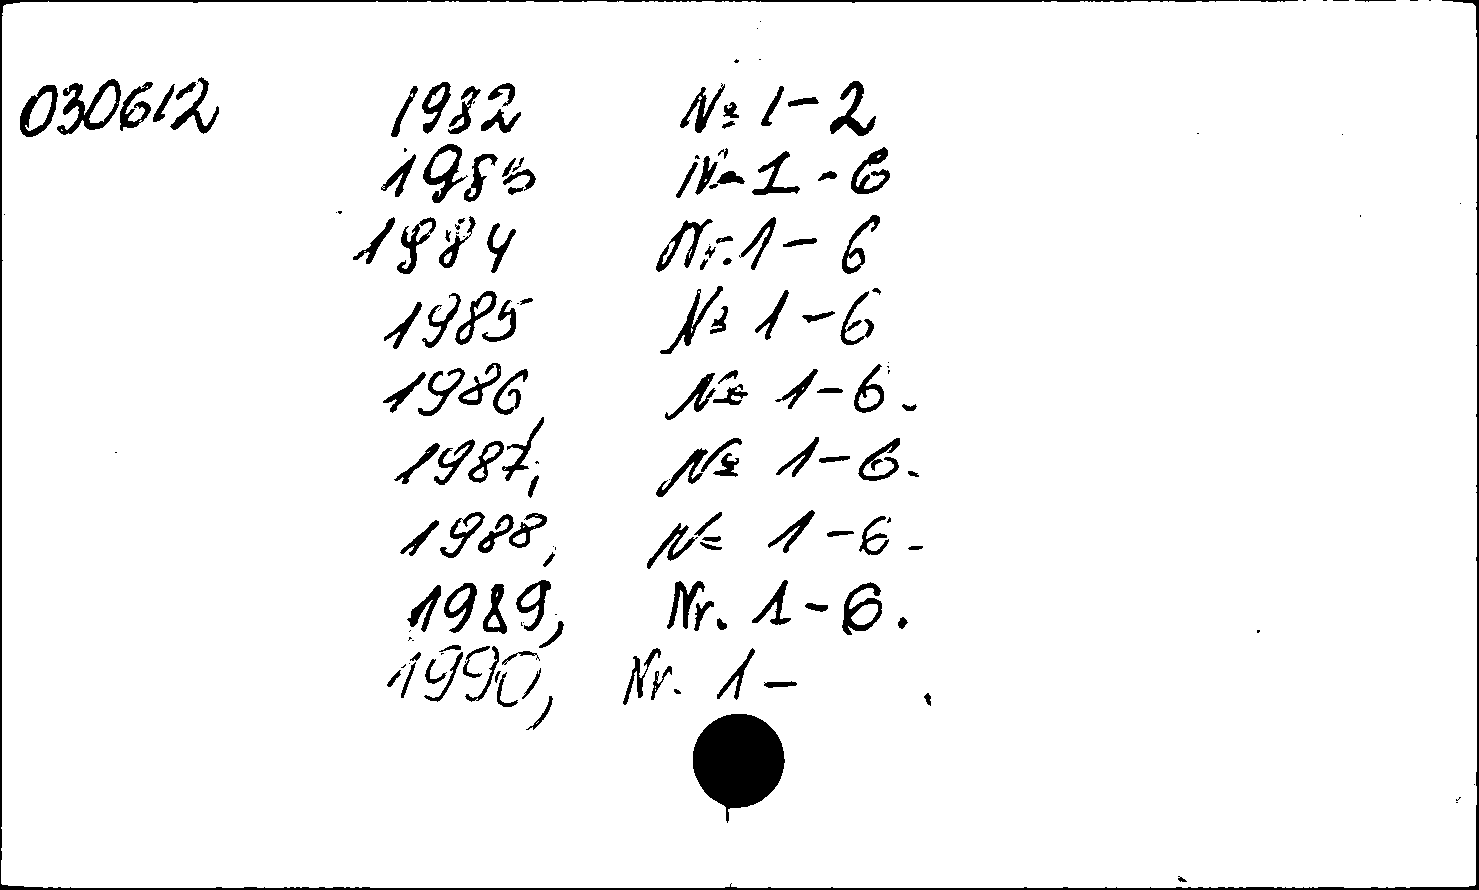 030612 1982 № 1-2
1983 № 1-6
1984 Nr. 1-6
1985 № 1-6
1986, № 1-6.
1987, № 1-6.
1988, № 1-6.
1989, Nr. 1-6.
1990, Nr. 1-